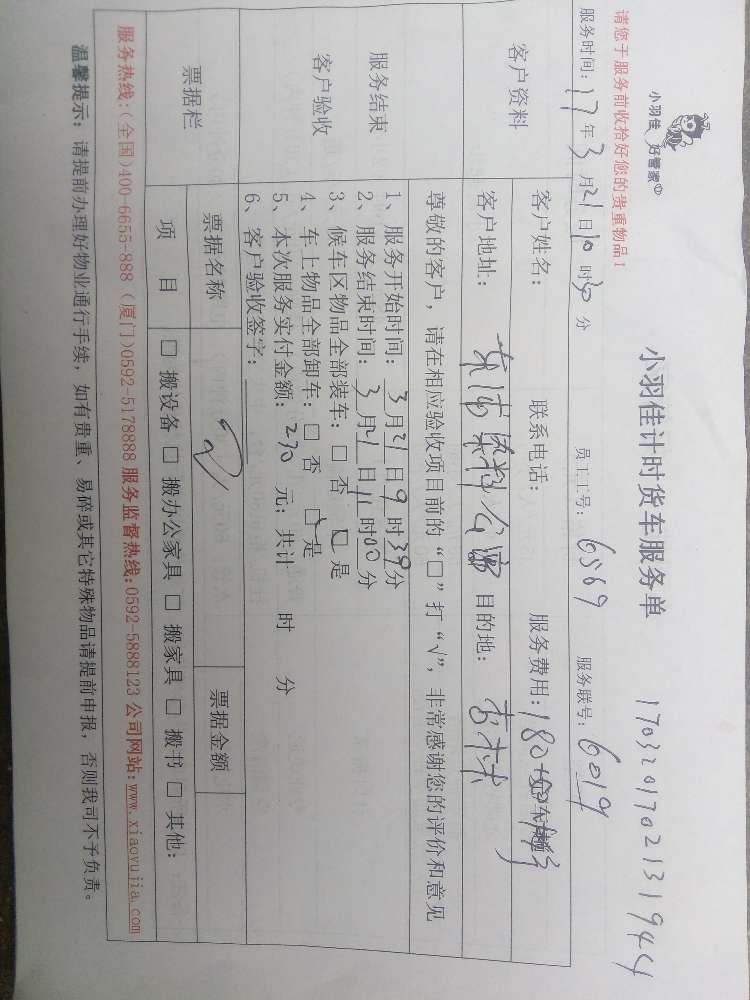 小羽佳 好管家
小羽佳计时货车服务单
1703201702131944
请您于服务前收拾好您的贵重物品！
服务时间：17年3月21日10时30分 员工工号：6569 服务联号：6019
客户资料
客户姓名： 联系电话： 服务费用：180
客户地址： 公园 目的地：
尊敬的客户，请在相应验收项目前的“□”打“√”，非常感谢您的评价和意见
服务结束
客户验收
1、服务开始时间：3月21日9时39分
2、服务结束时间：3月21日11时00分
3、候车区物品全部装车：□ 否 □ 是
4、车上物品全部卸车：□ 否 □ 是
5、本次服务实付金额：230 元；共计 时 分
6、客户验收签字：
票据栏
票据名称 票据金额
项 目 □ 搬设备 □ 搬办公家具 □ 搬家具 □ 搬书 □ 其他：
服务热线：(全国)400-6655-888 (厦门)0592-5178888 服务监督热线：0592-5888123 公司网站：www.xiaoyujia.com
温馨提示：请提前办理好物业通行手续，如有贵重、易碎或其它特殊物品请提前申报，否则我司不予负责。